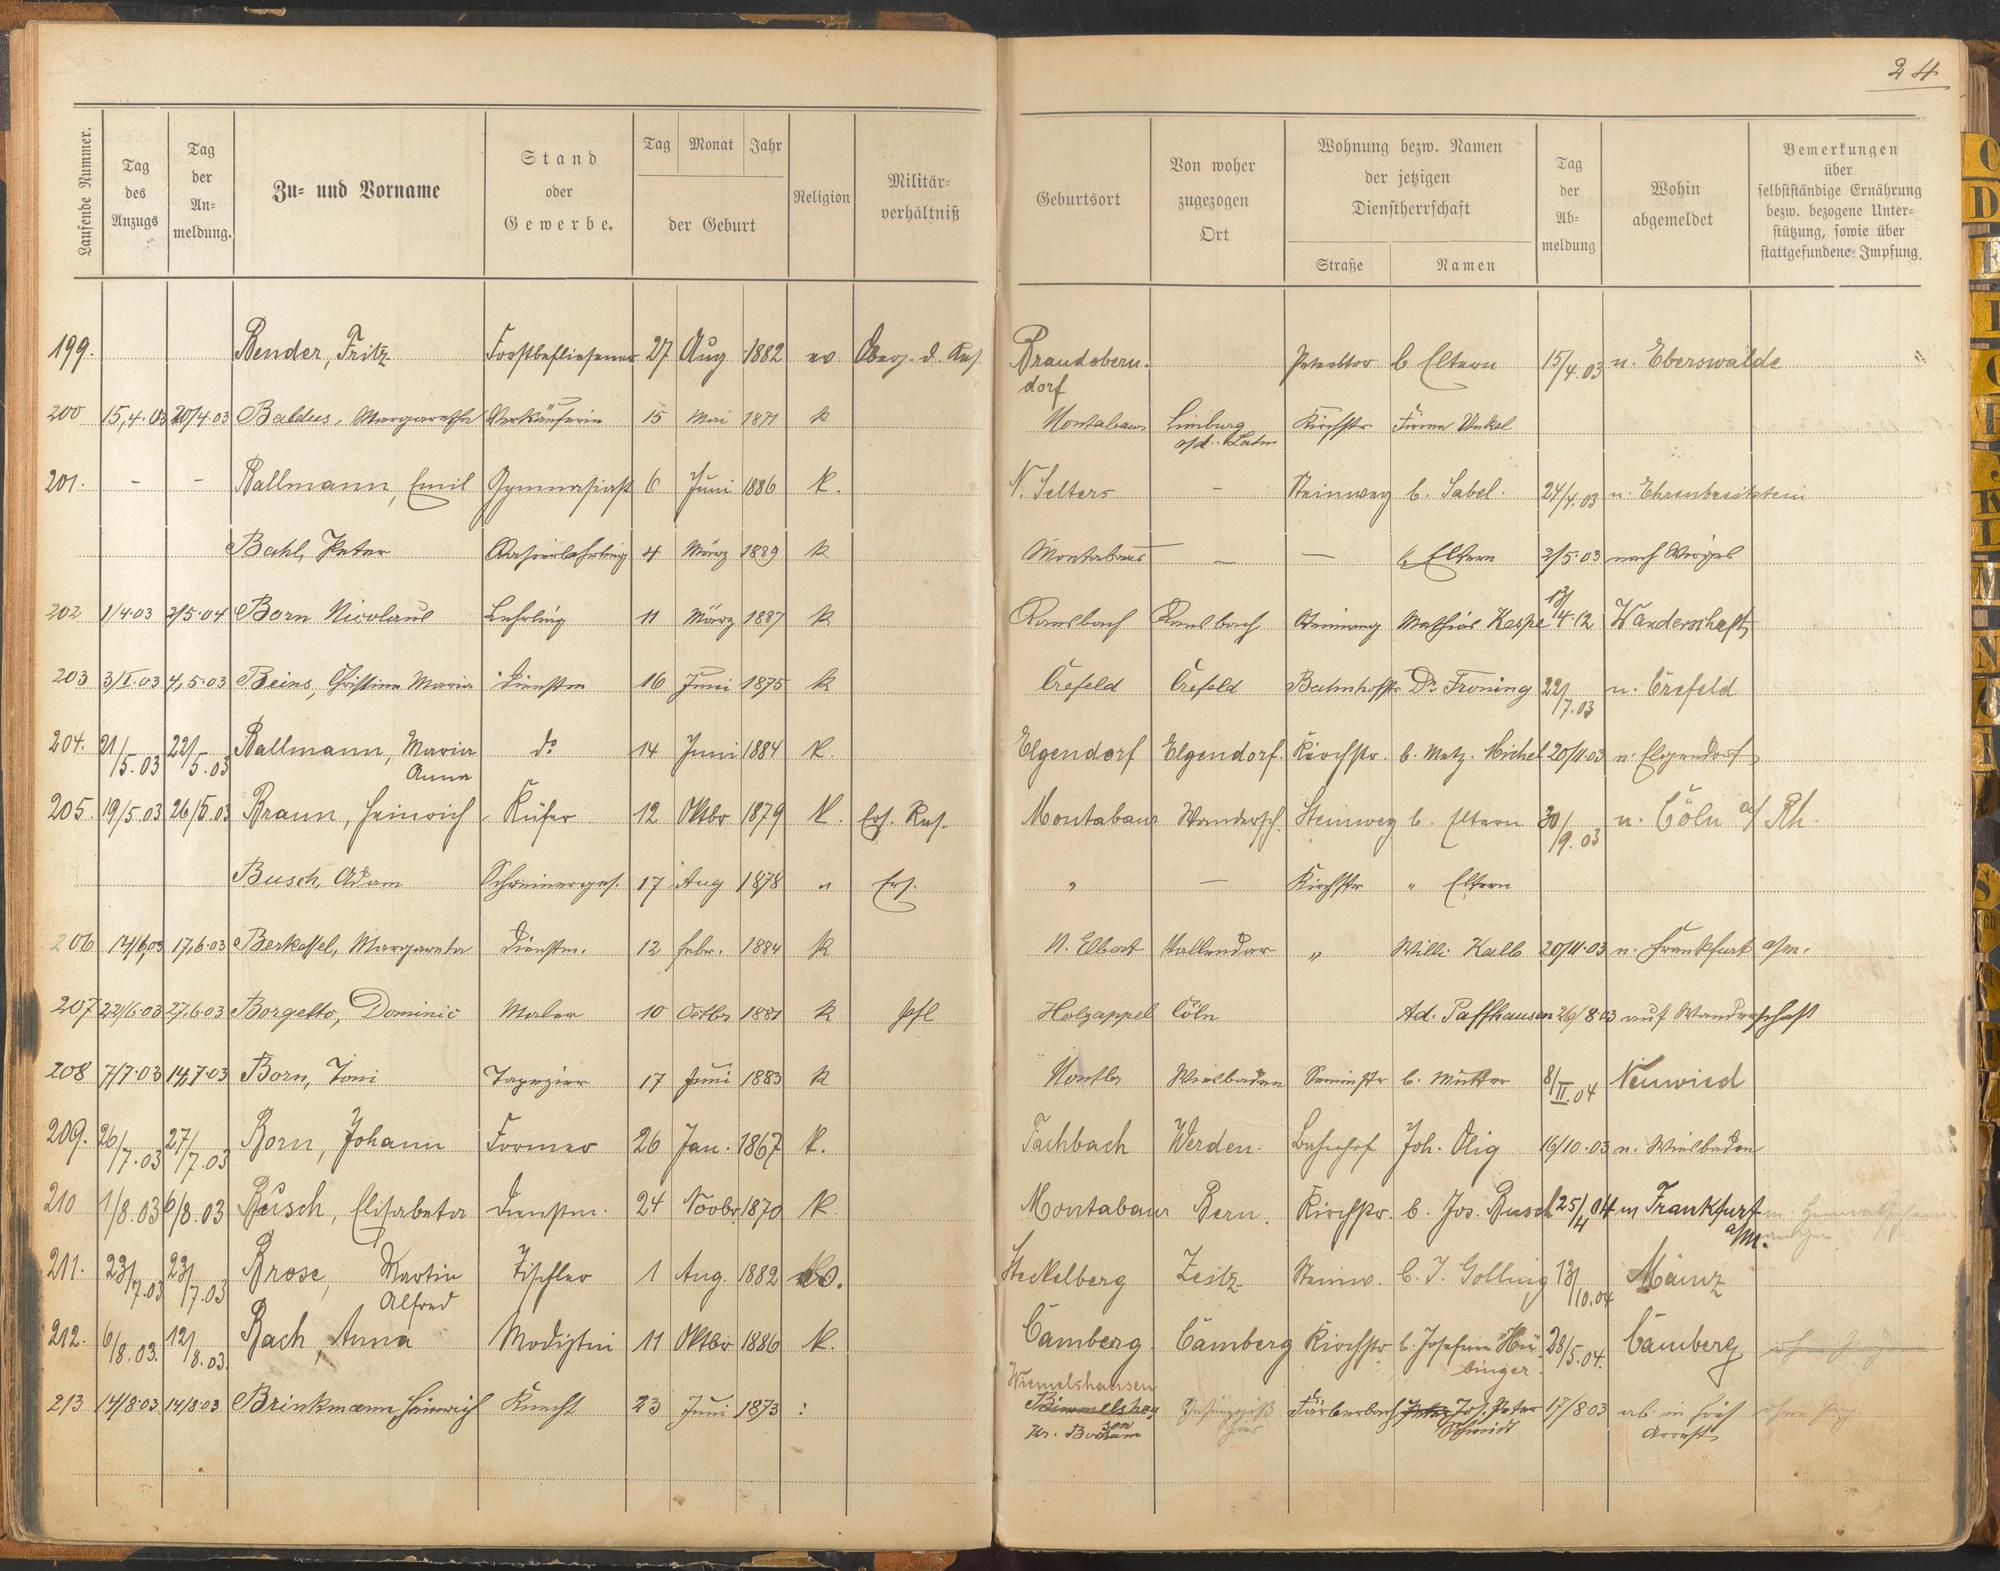 24
Laufende Nummer. Tag des Anzugs Tag der An= meldung. Zu= und Vorname Stand oder Gewerbe. Tag Monat Jahr der Geburt Religion Militär= verhältniß Geburtsort Von woher zugezogen Ort Wohnung bezw. Namen der jetzigen Dienstherrschaft Straße Namen Tag der Ab= meldung Wohin abgemeldet Bemerkungen über selbstständige Ernährung bezw. bezogene Unter= stützung, sowie über stattgefundene Impfung.
199. Bender, Fritz Forstbeflissener 27 Aug 1882 ev Brandobern. dorf b Eltern 15/4.03 n. Eberswalde
200 15,4.03 20/4.03 Baldus, Margaretha Verkäuferin 15 Mai 1871 k Montabaur Limburg a/d. Lahn Kirchstr Firma Unkel
201. - - Ballmann, Emil Gymnasiast 6 Juni 1886 k. N. Selters - Steinweg b. Sabel. 24/4.03 n. Ehrenbreitstein
Bahl, Peter 4 März 1889 k Montabaur — — b Eltern 2/5.03 nach Wirges
202 1/4.03 2/5.04 Born Nicolaus Lehrling 11 März 1887 k Ransbach Ransbach Steinweg Mathias Kespe 13/4.12 Wanderschaft
203 3/I.03 4,5.03 Beins, Christine Maria Dienstm 16 Juni 1875 k Crefeld Crefeld Bahnhofstr Dr Froning 22/7.03 n. Crefeld
204. 21/5.03 22/5.03 Ballmann, Maria Anna do 14 Juni 1884 k. Elgendorf Elgendorf. Kirchstr. b. Metz. Michel 20/11.03 n. Elgendorf
205. 19/5.03 26/5.03 Braun, Heinrich Küfer 12 Oktbr 1879 k. Ers. Res. Montabaur Wandersch. Steinweg b. Eltern 30/9.03 n. Cöln a/ Rh.
Busch, Adam Schreinerges. 17 Aug 1878 " Ers. " — Kirchstr " Eltern
206 14/6,03 17,6.03 Berkessel, Margareta Dienstm. 12 Febr. 1884 k N. Elbert Vallendar " Willi Kalb 20/11.03 n. Frankfurt a/m.
207 22/6.03 27,6.03 Borgetto, Dominic Maler 10 Octbr 1881 k Holzappel Cöln Ad. Paffhausen 26/8.03 auf Wanderschaft
208 7/7.03 14,7.03 Born, Toni Tapezier 17 Juni 1883 k Montbr Wiesbaden b. Mutter 8/II.04 Neuwied
209. 26/7.03 27/7.03 Born, Johann Former 26 Jan. 1867 k. Fachbach Werden. Bahnhof Joh. Olig 16/10.03 n. Wiesbaden
210 1/8.03 6/8.03 Busch, Elisabeta Dienstm. 24 Novbr 1870 k. Montabaur Bern. Kirchstr. b. Jos. Busch 25/4 04 n Frankfurt a/M.
211. 23/7.03 23/7.03 Brose, Martin Alfred Tischler 1 Aug. 1882 ev. Stekelberg Zeitz Steinw. b. J. Golling 13/10.04 Mainz
212. 6/8.03. 12/8.03 Bach, Anna Modistin 11 Oktbr 1886 k. Camberg. Camberg Kirchstr b. Josefine Hü- binger 28/5.04. Camberg
213 14/8.03 14/8.03 Brinkmann, Heinrich Knecht 23 Juni 1873 : Wiemelshausen Kr. Bochum Gefängniß hier Färberbach Jos. Peter Schmidt 17/8.03 ab. in Arrest